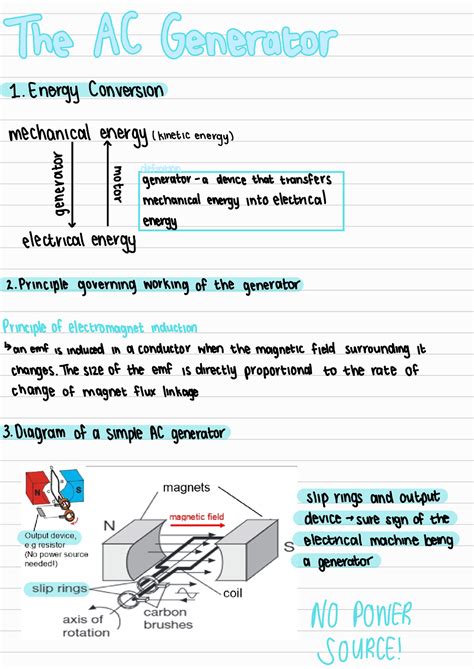 The AC Generator
1. Energy Conversion
mechanical energy (kinetic energy)
generator
motor
definition
generator - a device that transfers
mechanical energy into electrical
energy
electrical energy
2. Principle governing working of the generator
Principle of electromagnet induction
↳ an emf is induced in a conductor when the magnetic field surrounding it
changes. The size of the emf is directly proportional to the rate of
change of magnet flux linkage
3. Diagram of a simple AC generator
N
S
Output device,
e.g resistor
(No power source
needed!)
magnets
magnetic field
N
S
coil
slip rings
carbon
brushes
axis of
rotation
slip rings and output
device → sure sign of the
electrical machine being
a generator
NO POWER
SOURCE!